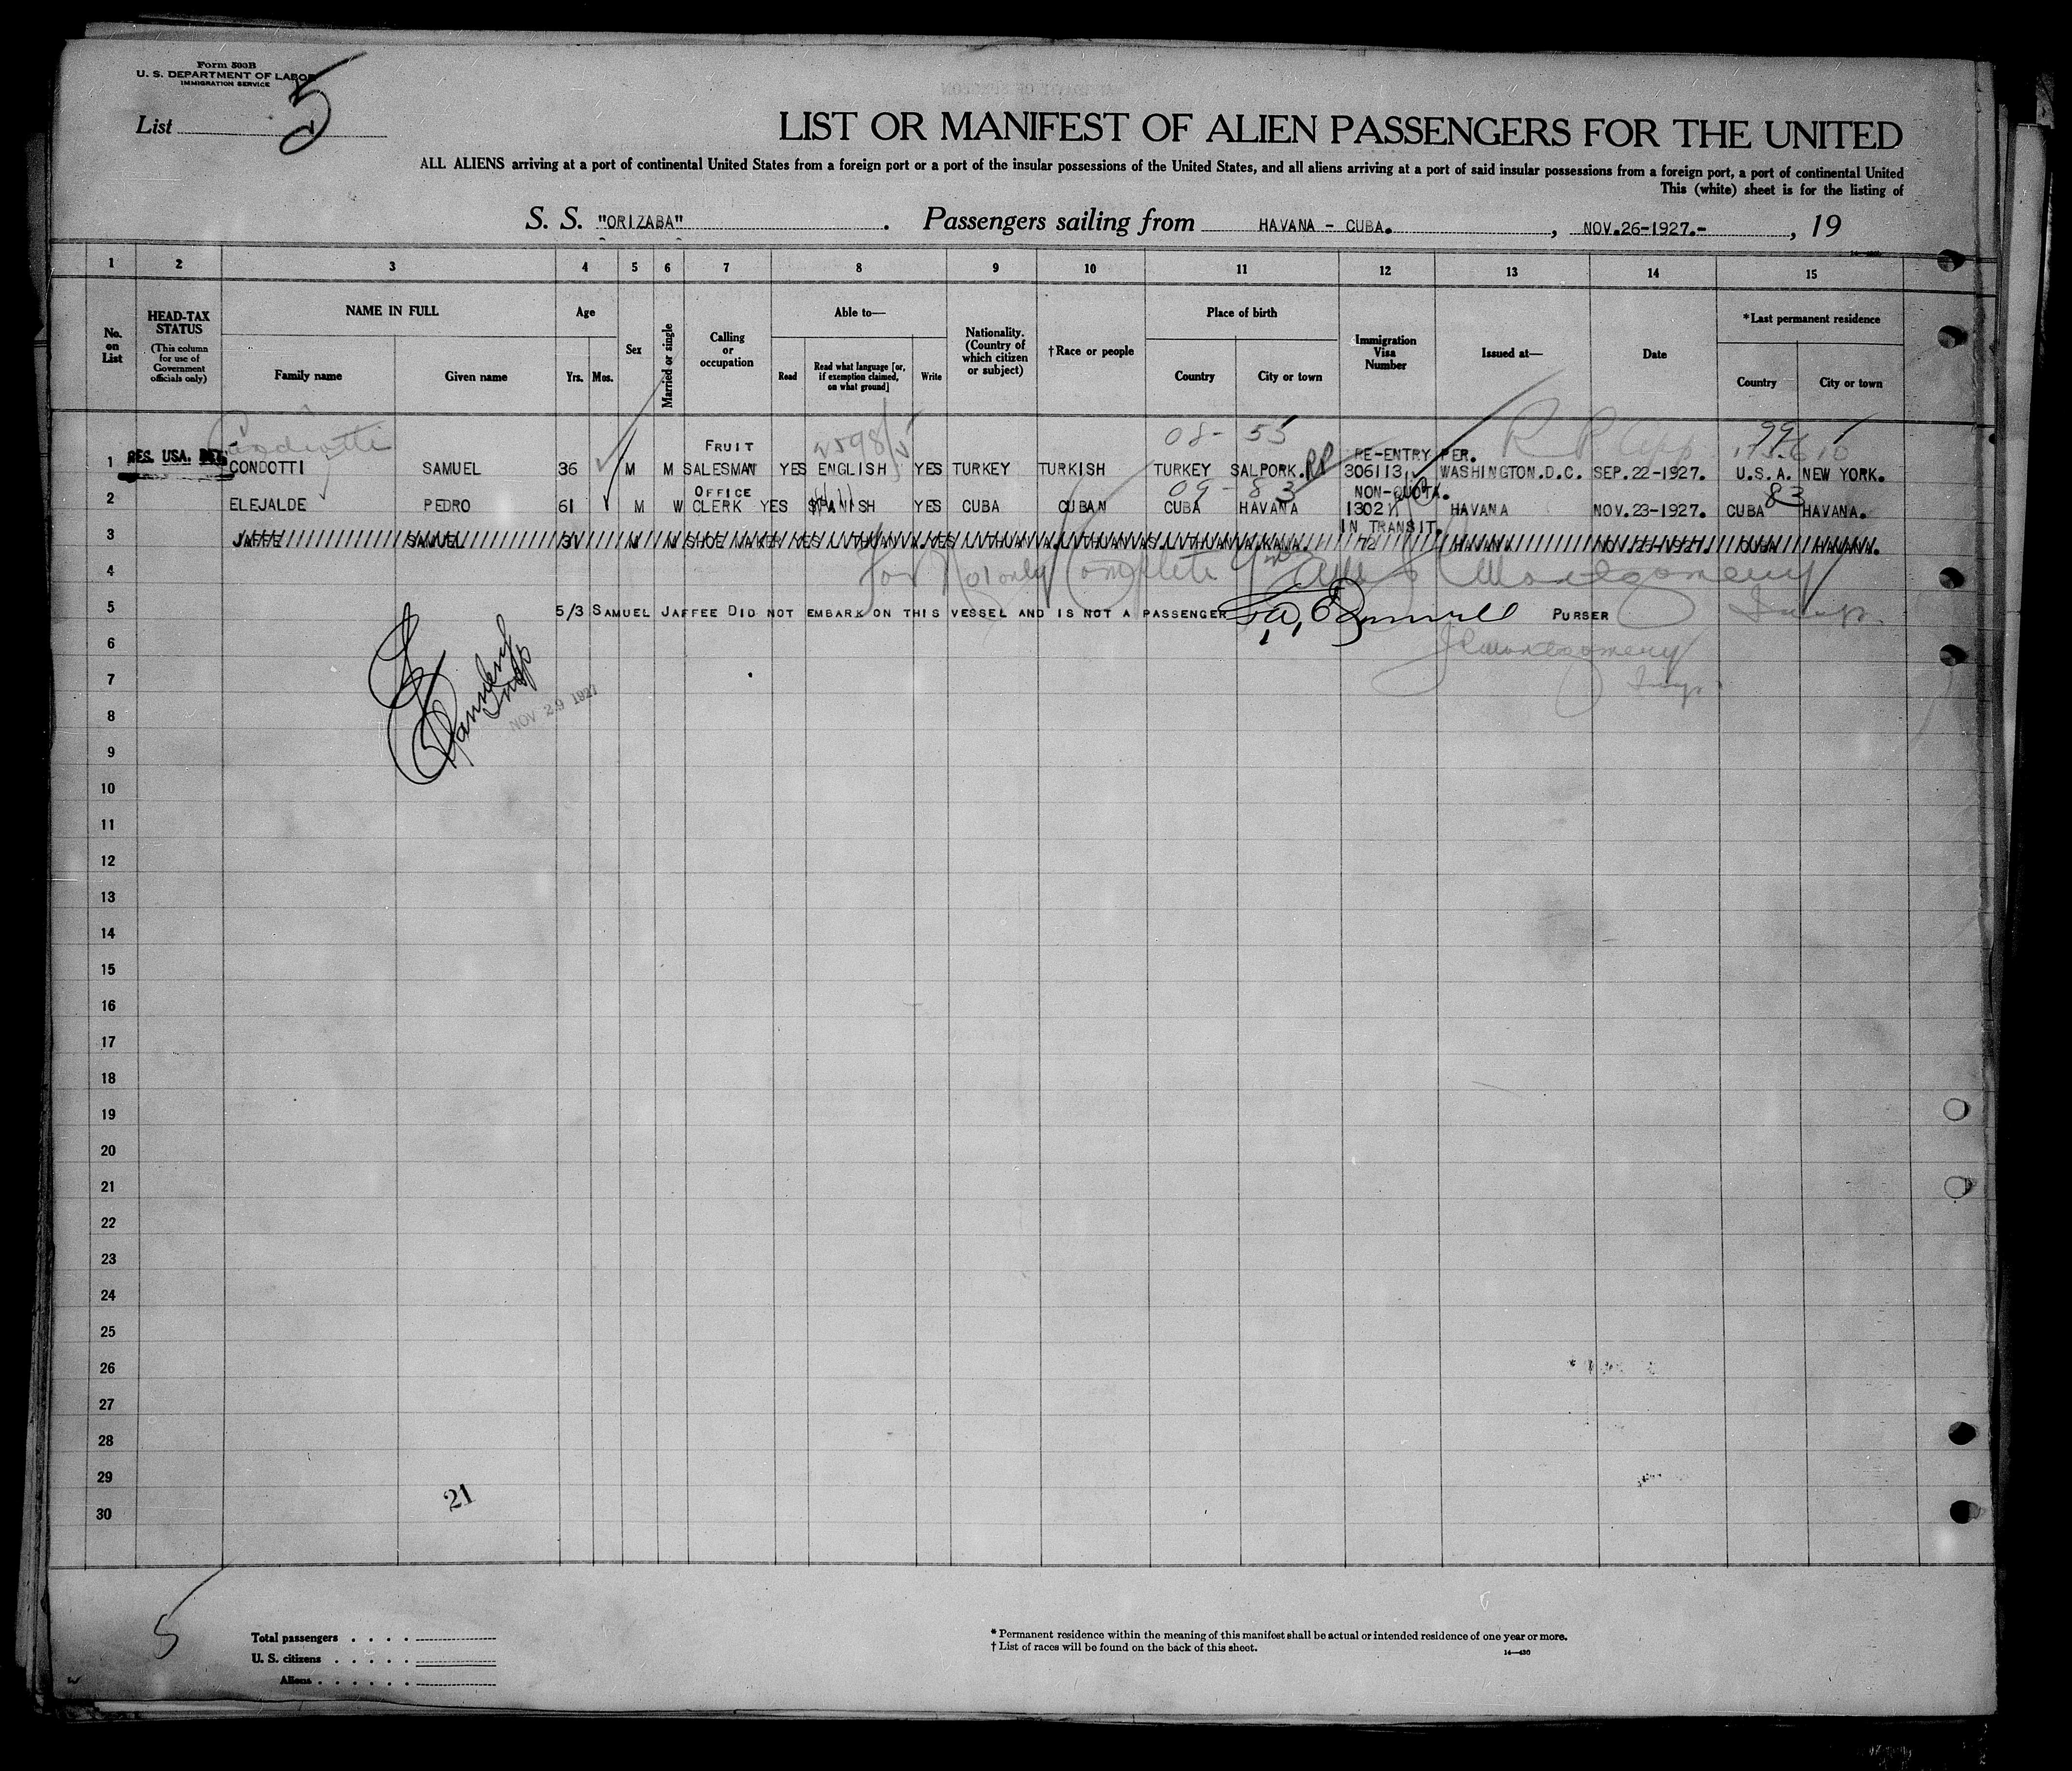 Form 500B
U. S. DEPARTMENT OF LABOR
IMMIGRATION SERVICE
List 5
LIST OR MANIFEST OF ALIEN PASSENGERS FOR THE UNITED
ALL ALIENS arriving at a port of continental United States from a foreign port or a port of the insular possessions of the United States, and all aliens arriving at a port of said insular possessions from a foreign port, a port of continental United
This (white) sheet is for the listing of
S. S. "ORIZABA" . Passengers sailing from HAVANA - CUBA. , NOV.26-1927.- , 19
1 2 3 4 5 6 7 8 9 10 11 12 13 14 15
No. on List
HEAD-TAX STATUS
(This column for use of Government officials only)
NAME IN FULL
Family name Given name
Age
Yrs. Mos.
Sex
Married or single
Calling or occupation
Able to—
Read
Read what language [or, if exemption claimed, on what ground]
Write
Nationality. (Country of which citizen or subject)
†Race or people
Place of birth
Country City or town
Immigration Visa Number
Issued at—
Date
*Last permanent residence
Country City or town
08 - 55 99
FRUIT RE-ENTRY PER.
1 RES. USA. CONDOTTI SAMUEL 36 M M SALESMAN YES ENGLISH YES TURKEY TURKISH TURKEY SALPORK. RP 306113 WASHINGTON.D.C. SEP.22-1927. U.S.A. NEW YORK.
OFFICE 09 - 83 NON-QUOTA. 83
2 ELEJALDE PEDRO 61 M W CLERK YES SPANISH YES CUBA CUBAN CUBA HAVANA 1302 HAVANA NOV.23-1927. CUBA HAVANA.
IN TRANSIT.
3 JAFFE SAMUEL 31 M 72 HAVANA CUBA HAVANA.
4 for No 1 only Complete Montgomery
5 5/3 SAMUEL JAFFEE DID NOT EMBARK ON THIS VESSEL AND IS NOT A PASSENGER PURSER Insp.
6 Montgomery
7 Insp.
NOV 29 1927
8
9
10
11
12
13
14
15
16
17
18
19
20
21
22
23
24
25
26
27
28
29
30
21
5
Total passengers . . . .
U. S. citizens . . . . .
Aliens . . . . . .
* Permanent residence within the meaning of this manifest shall be actual or intended residence of one year or more.
† List of races will be found on the back of this sheet.
14—430